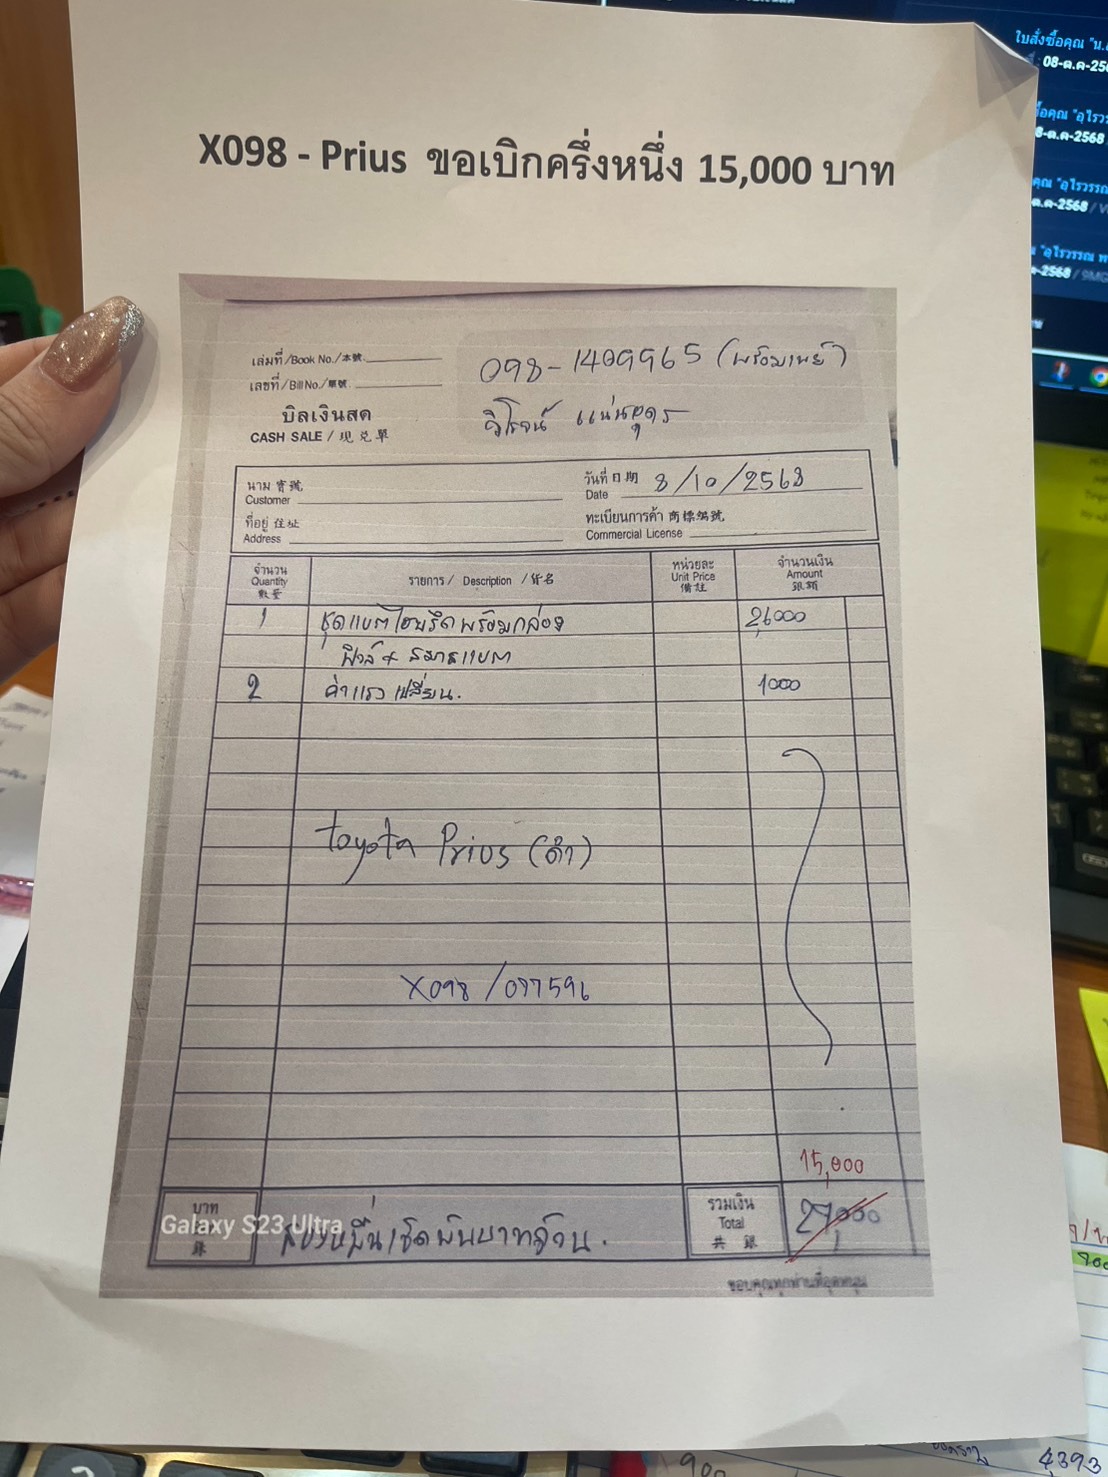 X098 - Prius ขอเบิกครึ่งหนึ่ง 15,000 บาท
เล่มที่/Book No./本號
เลขที่/Bill No./單號
098-1409965 (พร้อมเพย์)
บิลเงินสด
CASH SALE / 現 兑 單
วิโรจน์ แน่นอุดร
นาม 寶號
Customer
วันที่ 日期 8/10/2568
Date
ที่อยู่ 住址
Address
ทะเบียนการค้า 商標編號
Commercial License
จำนวน
Quantity
數量
รายการ / Description / 貨名
หน่วยละ
Unit Price
備註
จำนวนเงิน
Amount
銀額
1 ชุดแบตไฮบริดพร้อมกล่อง 26000
ฟิวส์ + สมาร์ทแบต
2 ค่าแรงเปลี่ยน. 1000
toyota Prius (ดำ)
X098 /077596
15,000
บาท
銖
Galaxy S23 Ultra
สองหมื่นเจ็ดพันบาทถ้วน.
รวมเงิน
Total
共 銀
27,000
ขอบคุณทุกท่านที่อุดหนุน
ใบสั่งซื้อคุณ "น.
08-ต.ค-256
ซื้อคุณ "อุไรวร
8-ต.ค-2568
คุณ "อุไรวรรณ
ต.ค-2568
"อุไรวรรณ ท
-2568 / 9MG
4393
900